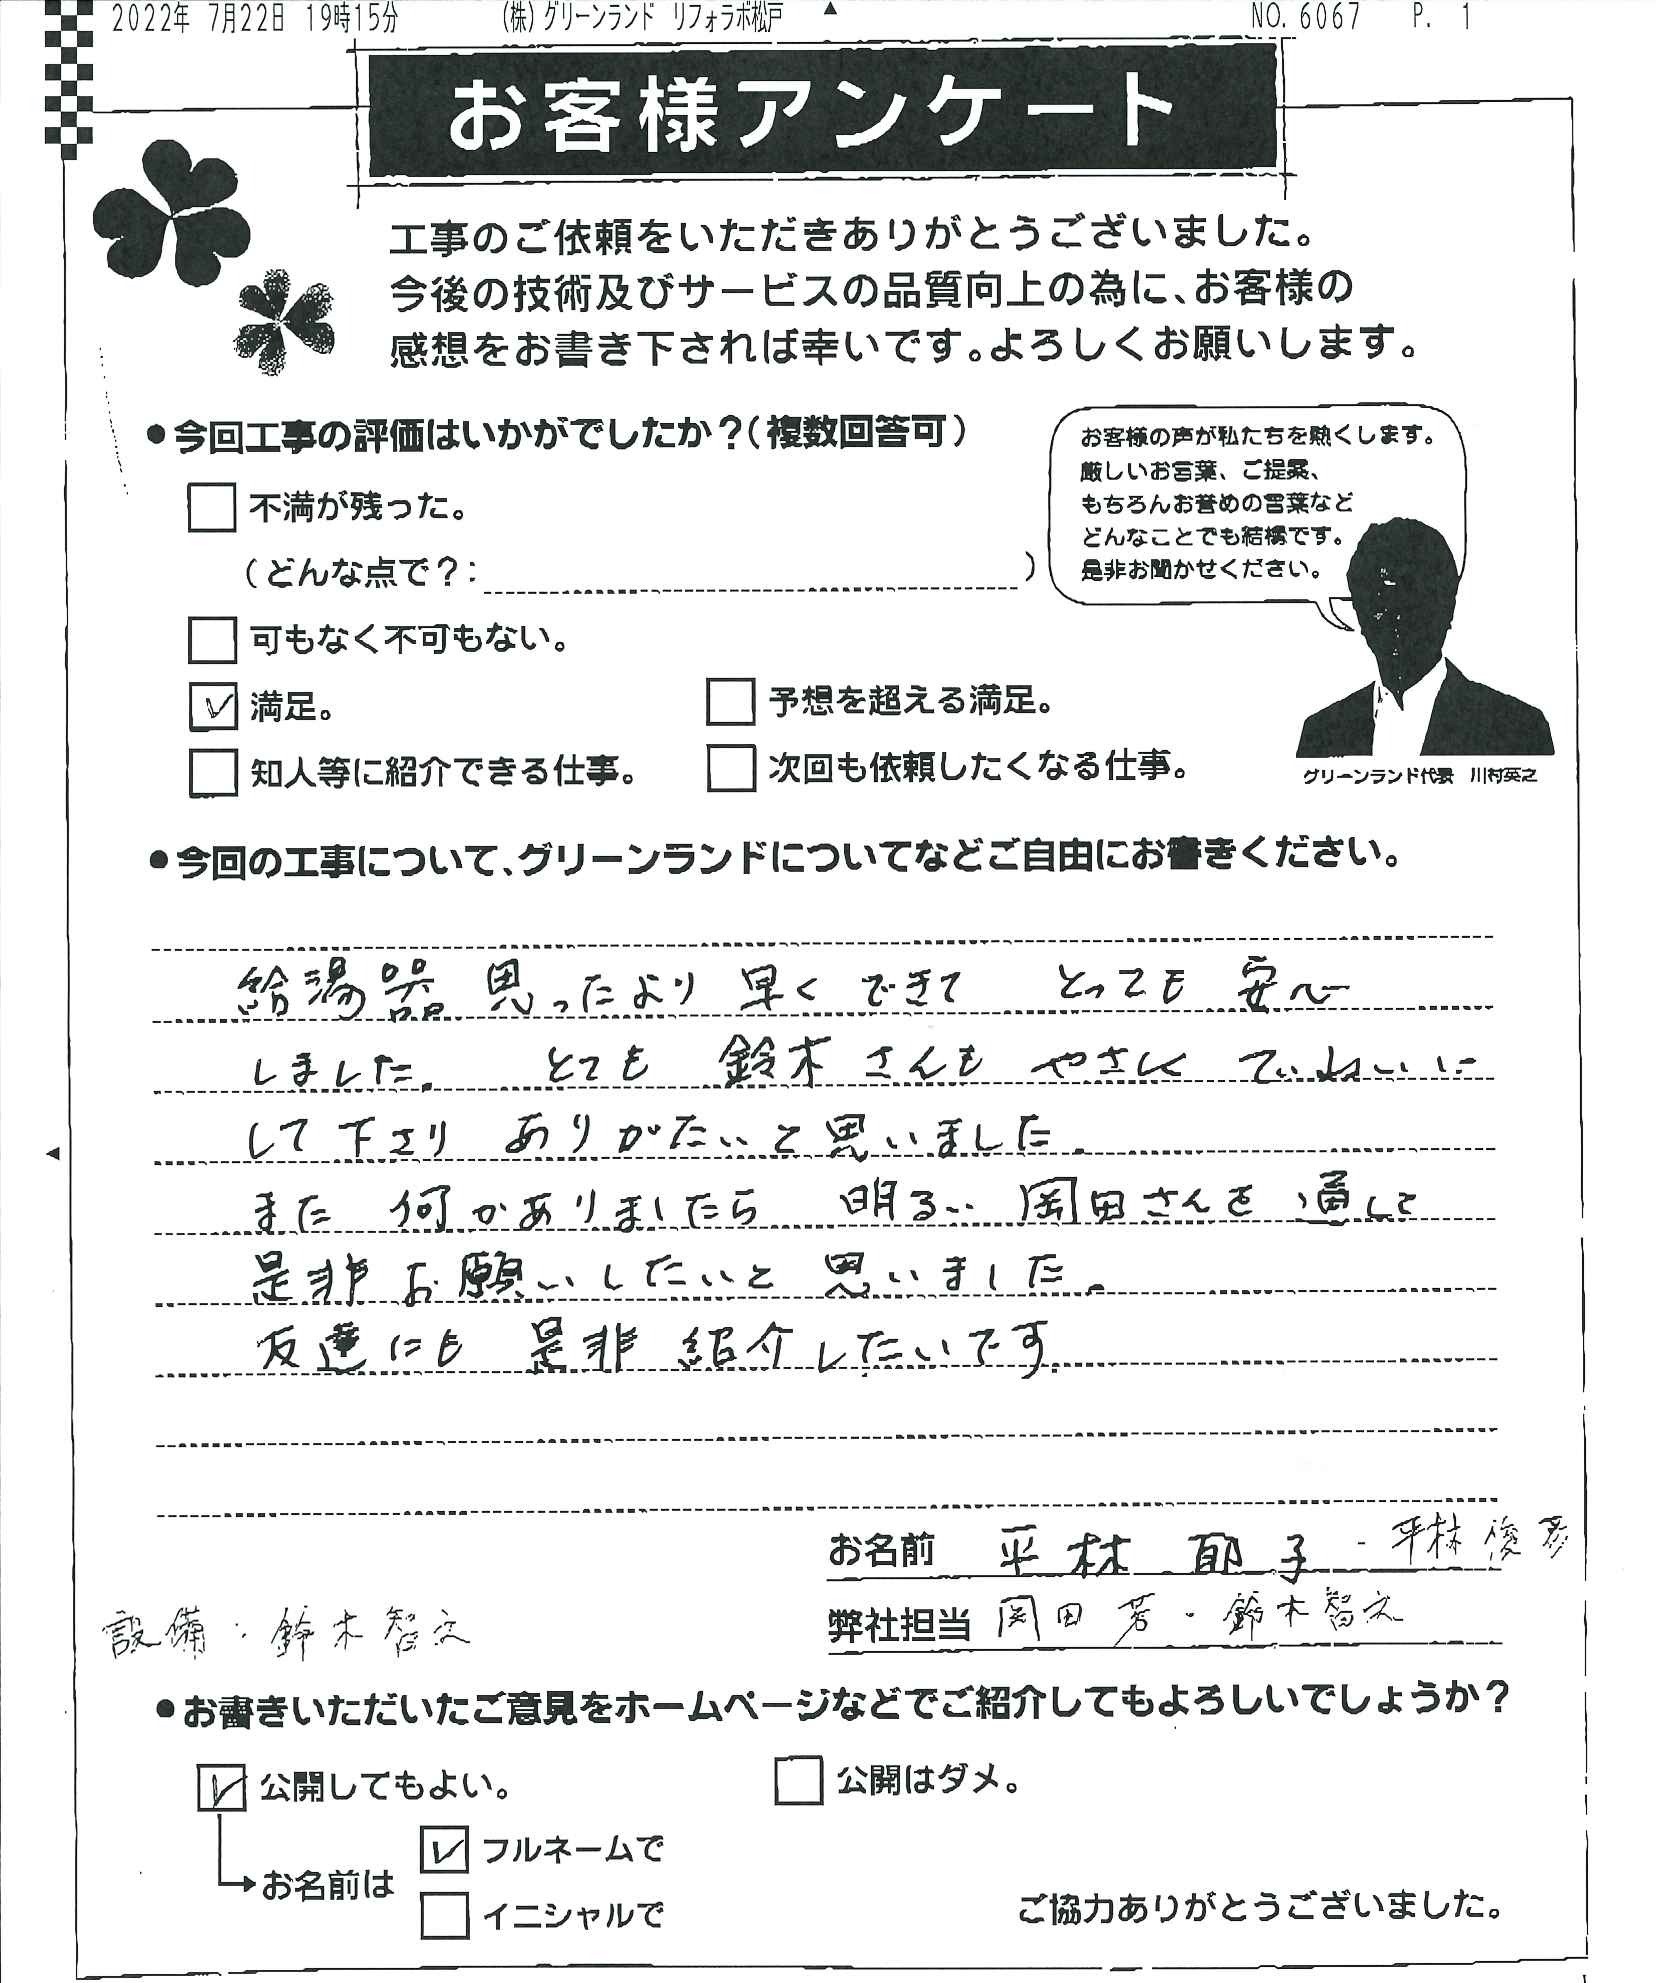 2022年 7月22日 19時15分 (株)グリーンランド リフォラボ松戸 NO. 6067 P. 1
お客様アンケート
工事のご依頼をいただきありがとうございました。
今後の技術及びサービスの品質向上の為に、お客様の
感想をお書き下されば幸いです。よろしくお願いします。
●今回工事の評価はいかがでしたか?(複数回答可)
不満が残った。
(どんな点で?: )
可もなく不可もない。
満足。
予想を超える満足。
知人等に紹介できる仕事。
次回も依頼したくなる仕事。
お客様の声が私たちを熱くします。
厳しいお言葉、ご提案、
もちろんお誉めの言葉など
どんなことでも結構です。
是非お聞かせください。
グリーンランド代表 川村英之
●今回の工事について、グリーンランドについてなどご自由にお書きください。
給湯器 思ったより 早く できて とっても 安心
しました。 とても 鈴木さんも やさしく ていねいに
して下さり ありがたいと思いました。
また 何かありましたら 明るい 岡田さんを 通して
是非お願いしたいと 思いました。
友達にも 是非 紹介したいです.
お名前 平林 郁子 - 平林 俊彦
弊社担当 岡田 ・鈴木智文
設備・鈴木智文
●お書きいただいたご意見をホームページなどでご紹介してもよろしいでしょうか?
公開してもよい。
公開はダメ。
お名前は
フルネームで
イニシャルで
ご協力ありがとうございました。